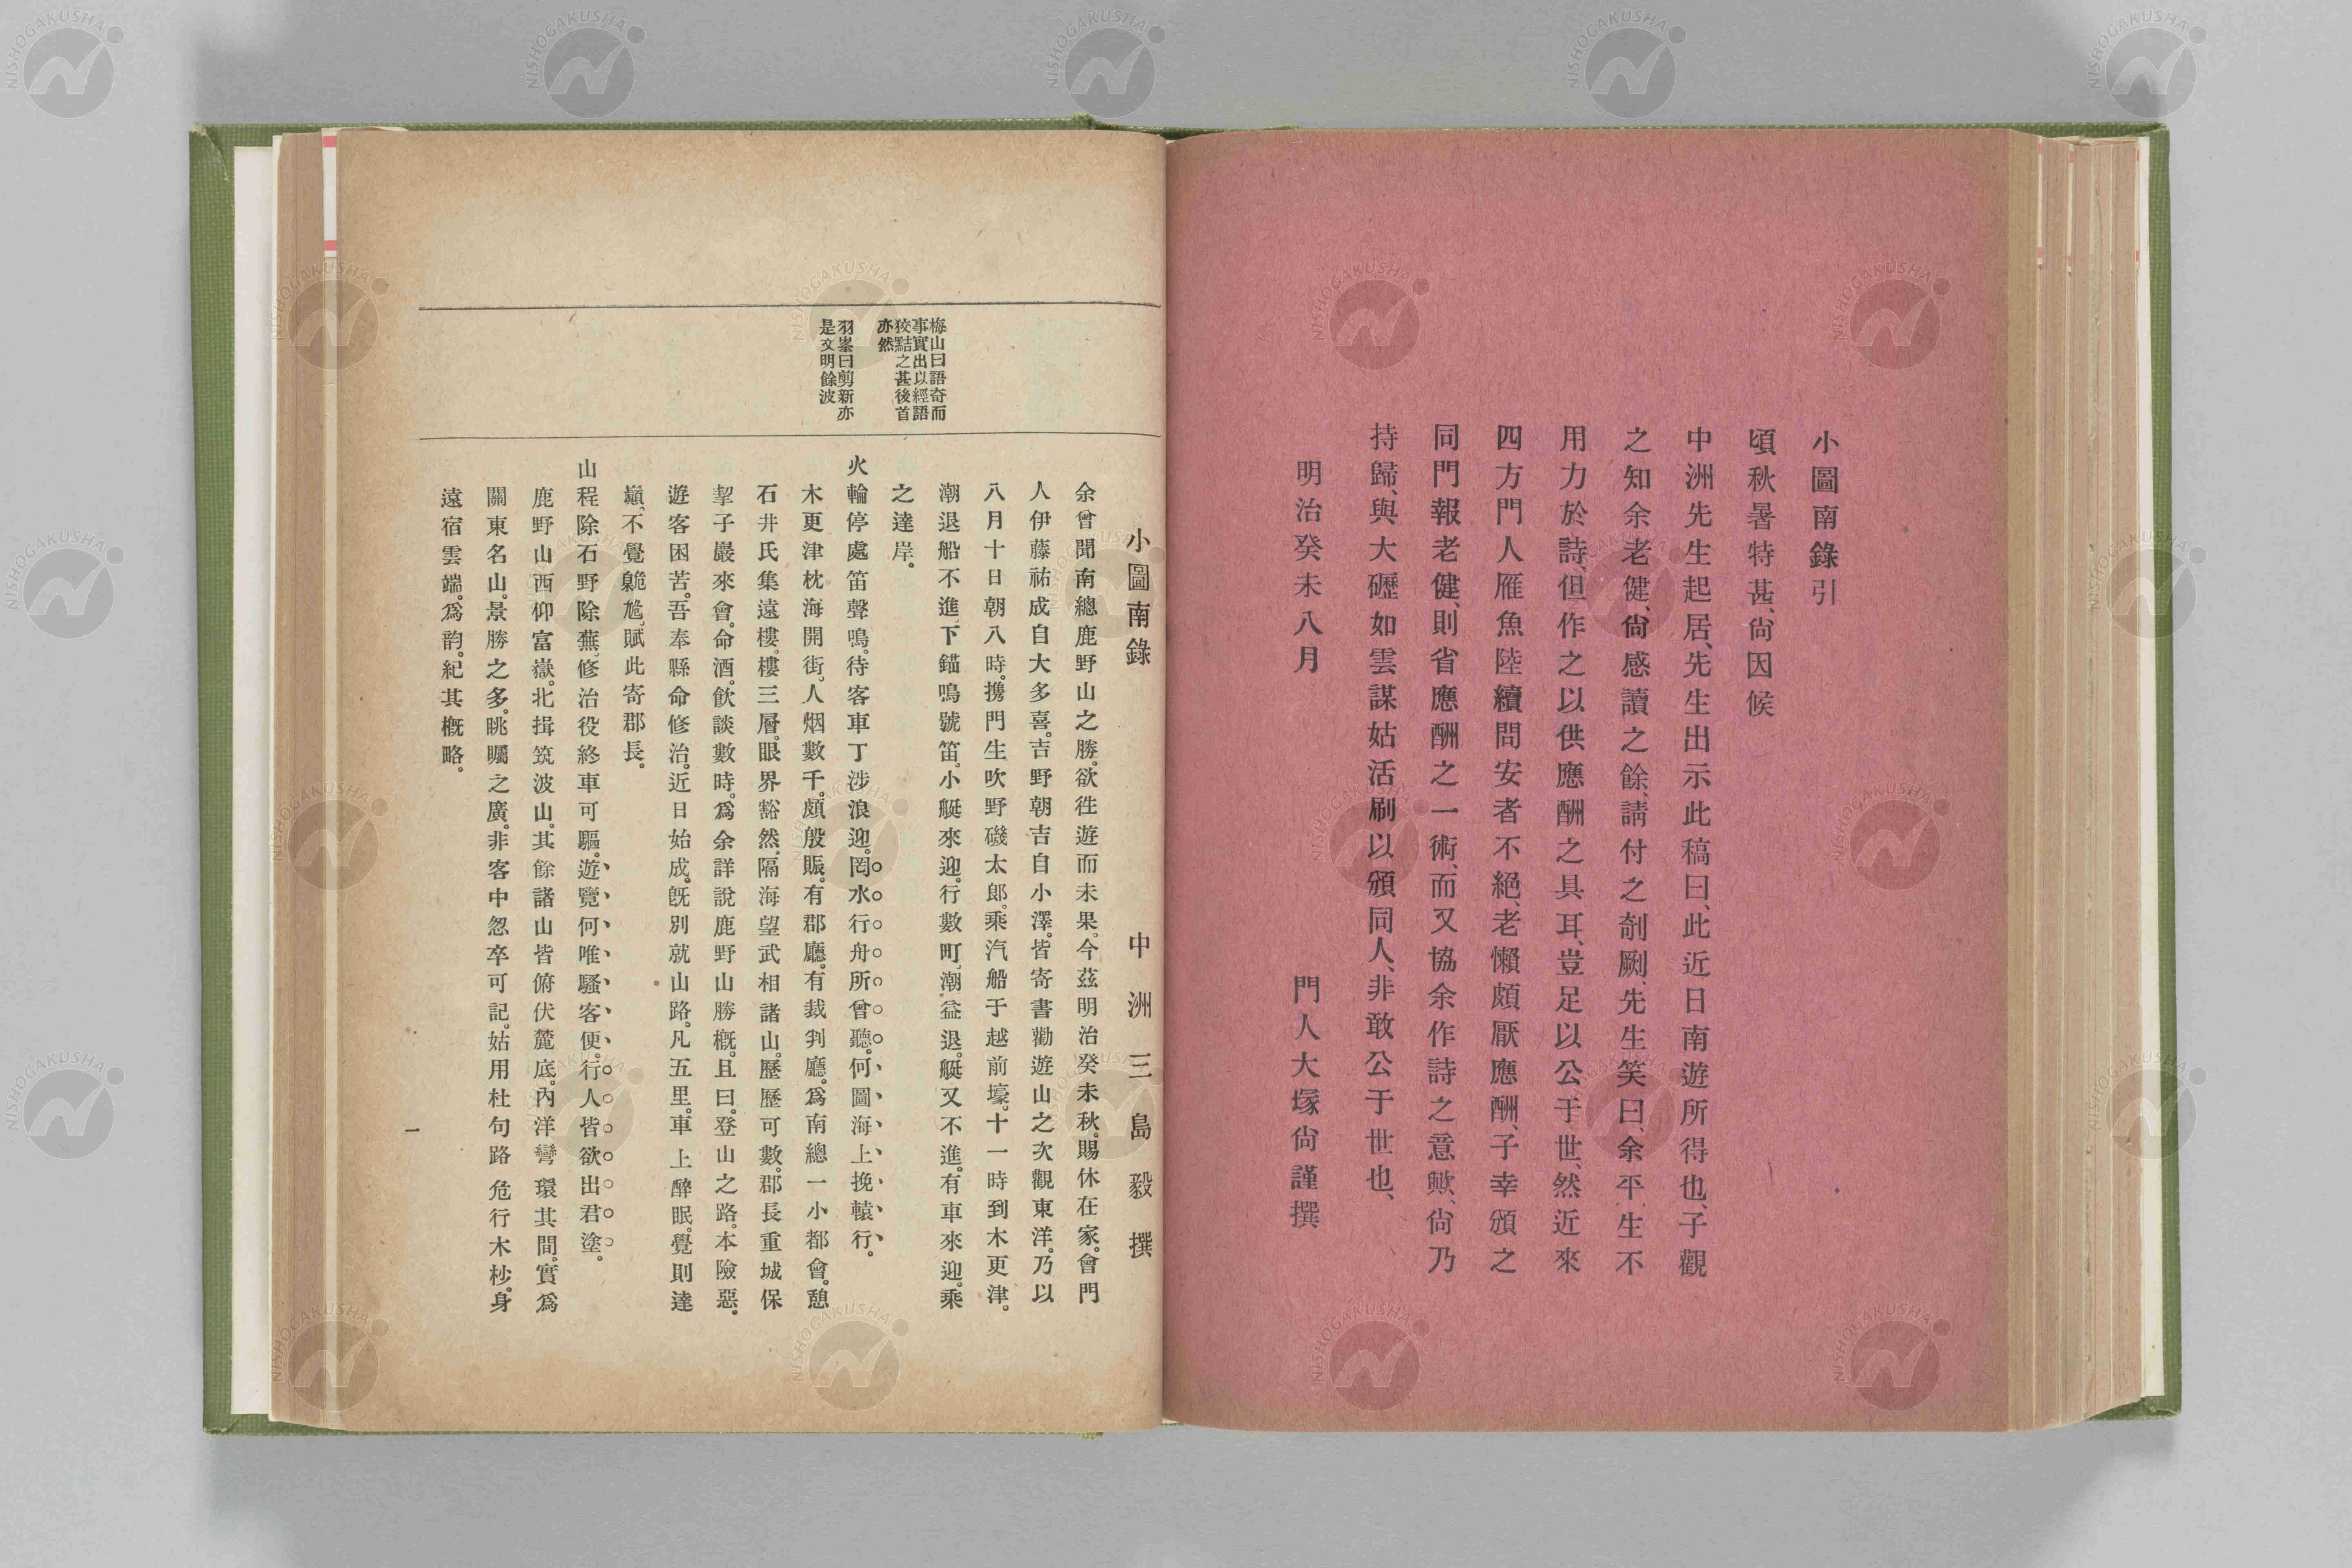 小圖南錄引
頃秋暑特甚、尙因候
中洲先生起居、先生出示此稿曰、此近日南遊所得也、子觀
之知余老健、尙感讀之餘、請付之剞劂、先生笑曰、余平生不
用力於詩、但作之以供應酬之具耳、豈足以公于世、然近來
四方門人雁魚陸續問安者不絕、老懶頗厭應酬、子幸頒之
同門報老健、則省應酬之一術、而又協余作詩之意歟、尙乃
持歸、與大礰如雲謀姑活刷以頒同人、非敢公于世也、
明治癸未八月
門人大塚尙謹撰
小圖南錄
中洲三島毅撰
余曾聞南總鹿野山之勝。欲徃遊而未果。今茲明治癸未秋。賜休在家。會門
人伊藤祐成自大多喜。吉野朝吉自小澤。皆寄書勸遊山之次觀東洋。乃以
八月十日朝八時。携門生吹野磯太郎。乘汽船于越前壕。十一時到木更津。
潮退船不進。下錨鳴號笛。小艇來迎。行數町。潮益退。艇又不進。有車來迎。乘
之達岸。
火輪停處笛聲鳴。待客車丁涉浪迎。罔水行舟所曾聽。何圖海上挽轅行。
木更津枕海開街。人烟數千。頗殷賑。有郡廳。有裁判廳。爲南總一小都會。憩
石井氏集遠樓。樓三層。眼界豁然。隔海望武相諸山。歷歷可數。郡長重城保
挈子巖來會。命酒。飮談數時。爲余詳說鹿野山勝槪。且曰。登山之路。本險惡。
遊客困苦。吾奉縣命修治。近日始成。旣別就山路。凡五里。車上醉眠。覺則達
巓。不覺臲卼。賦此寄郡長。
山程除石野除蕪。修治役終車可驅。遊覽何唯騷客便。行人皆欲出君塗。
鹿野山西仰富嶽。北揖筑波山。其餘諸山皆俯伏麓底。內洋彎環其間。實爲
關東名山。景勝之多。眺矚之廣。非客中忽卒可記。姑用杜句路危行木杪。身
遠宿雲端。爲韵。紀其槪略。
梅山曰語奇而
事實出以經語
狡黠之甚後首
亦然
羽峯曰剪新亦
是文明餘波
一